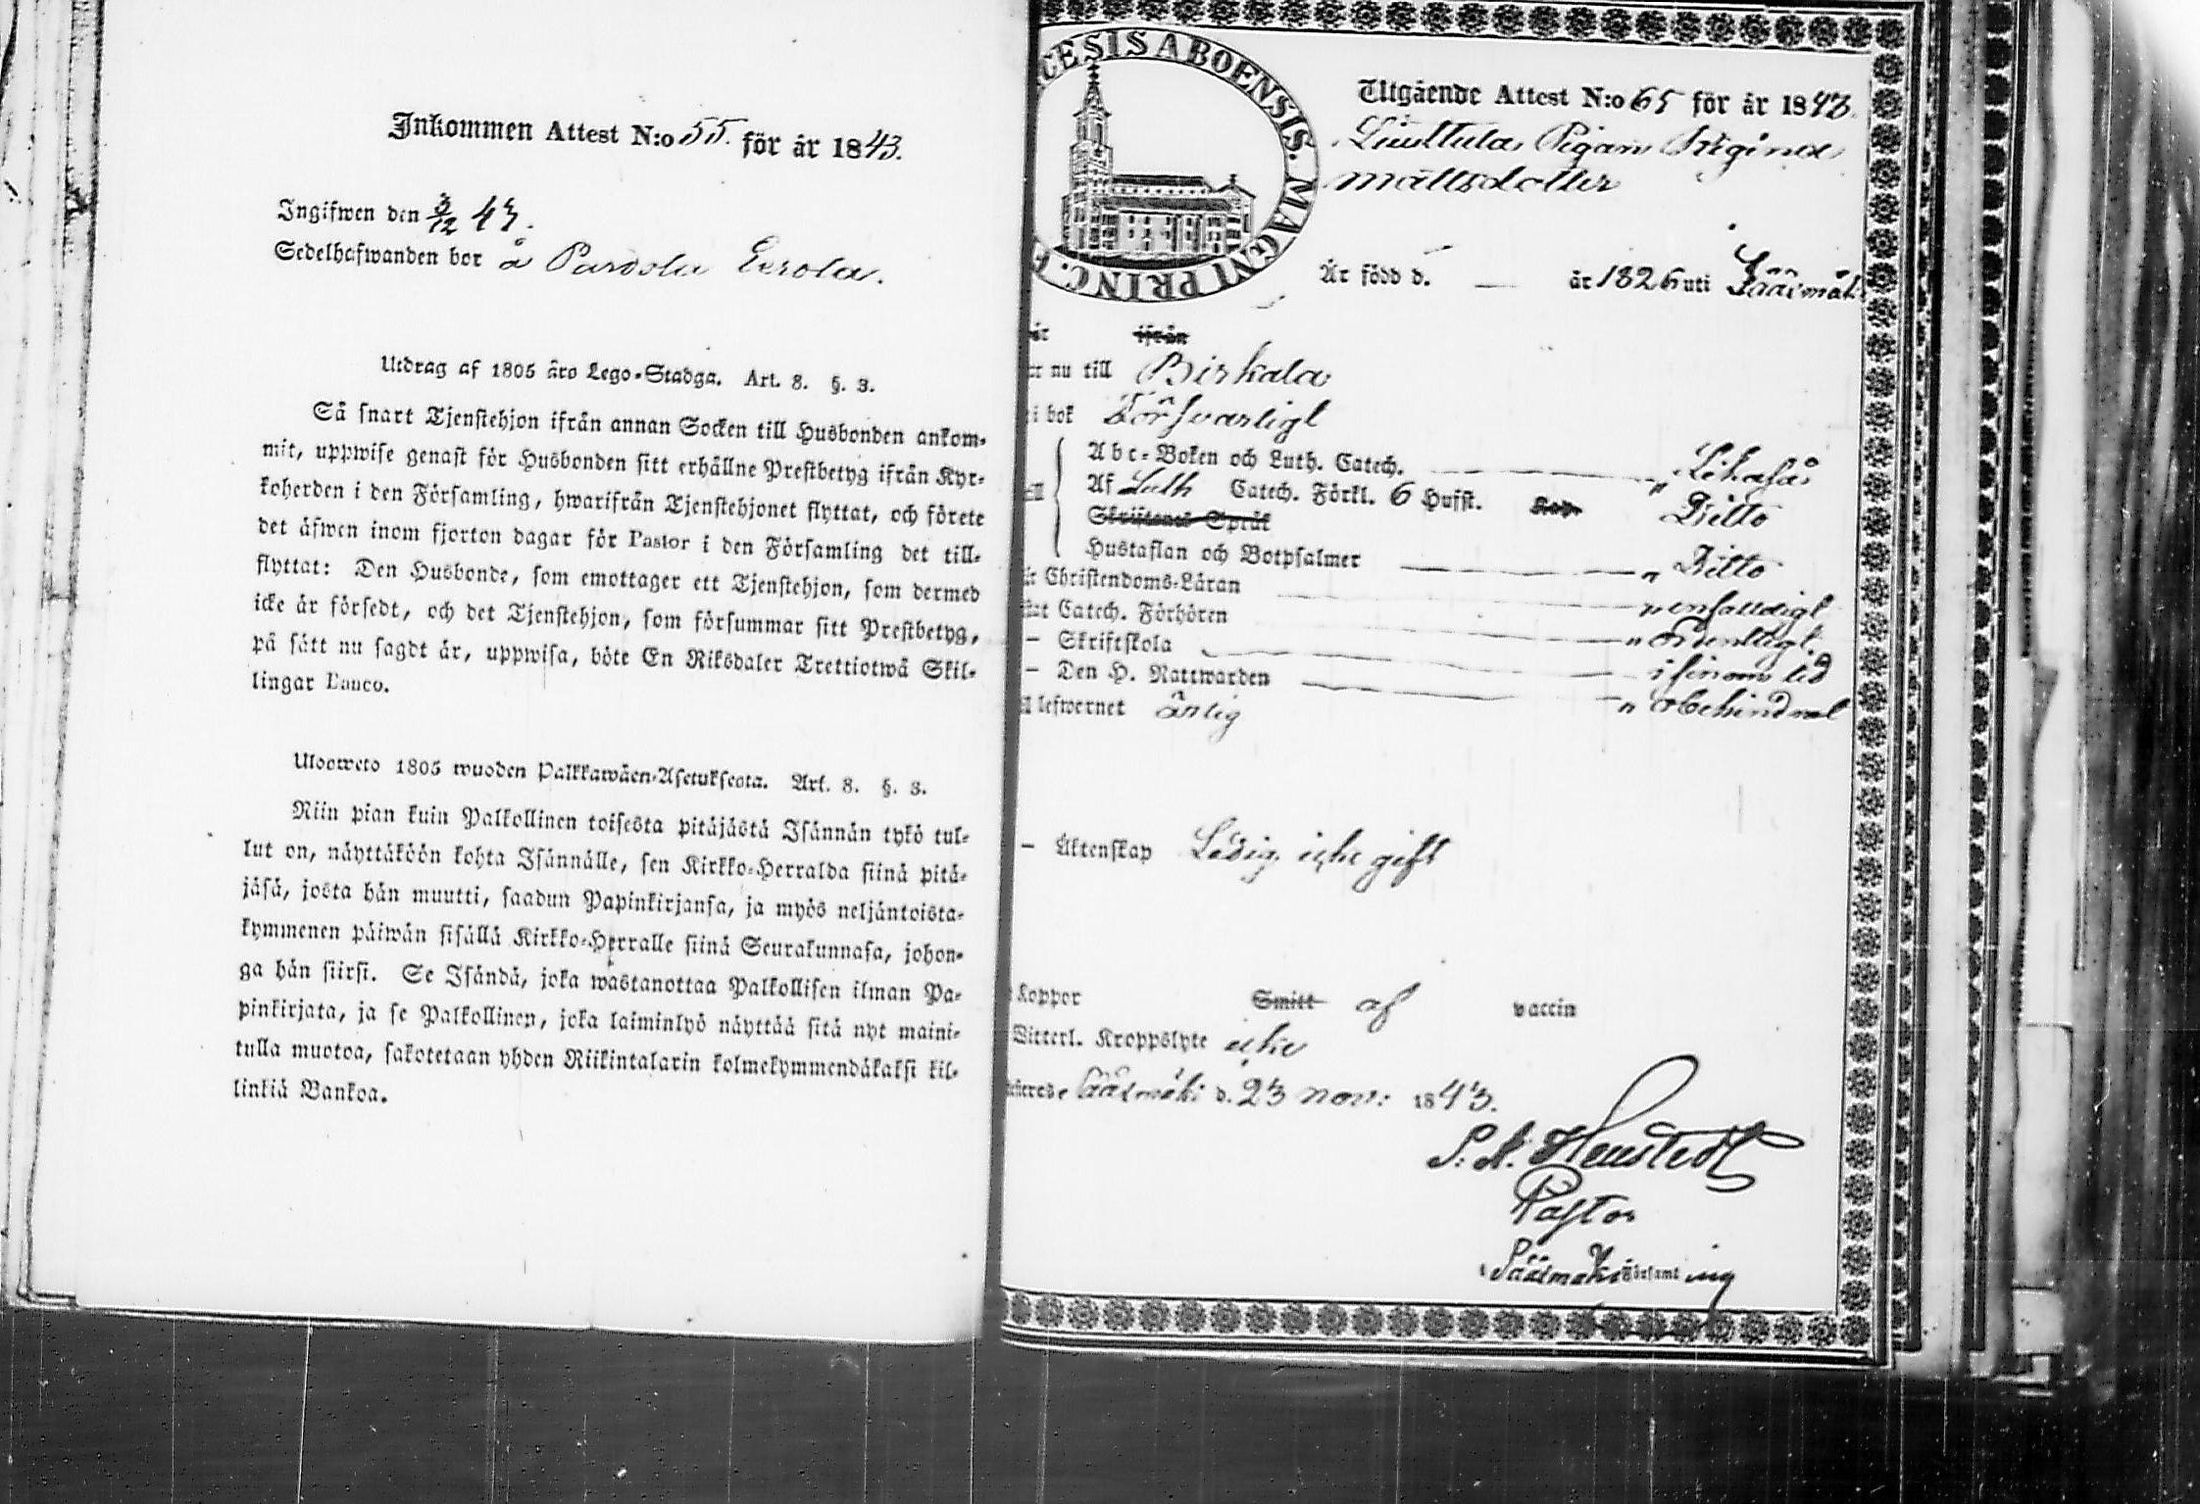 Inkommen Attest N:o 55. för år 1843.
Ingifwen den 3/12 43.
Sedelhafwanden bor å Pardola Eerola.
Utdrag af 1805 åro Lego-Stadga. Art. 8. §. 3.
Så snart Tjenstehjon ifrån annan Socken till Husbonden ankom-
mit, uppwise genast för Husbonden sitt erhållne Prestbetyg ifrån Kyr-
koherden i den Församling, hwarifrån Tjenstehjonet flyttat, och förete
det äfwen inom fjorton dagar för Pastor i den Församling det till-
flyttat: Den Husbonde, som emottager ett Tjenstehjon, som dermed
icke är försedt, och det Tjenstehjon, som försummar sitt Prestbetyg,
på sätt nu sagdt är, uppwisa, böte En Riksdaler Trettiotwå Skil-
lingar Banco.
Ulosweto 1805 wuoden Palkkawäen-Asetuksesta. Art. 8. §. 3.
Niin pian kuin Palkollinen toisesta pitäjästä Isännän tykö tul-
lut on, näyttäköön kohta Isännälle, sen Kirkko-Herralda siinä pitä-
jäsä, josta hän muutti, saadun Papinkirjansa, ja myös neljäntoista-
kymmenen päiwän sisällä Kirkko-Herralle siinä Seurakunnasa, johon-
ga hän siirsi. Se Isändä, joka wastanottaa Palkollisen ilman Pa-
pinkirjata, ja se Palkollinen, joka laiminlyö näyttää sitä nyt maini-
tulla muotoa, sakotetaan yhden Riikintalarin kolmekymmendäkaksi kil-
linkiä Bankoa.
CESIS ABOENSIS. MAGNI PRINC. F
Utgående Attest N:o 65 för år 1843.
Liuttula, Pigan Regina
Mattsdotter
År född d. — år 1826 uti Sääxmäki
ifrån
nu till Birkala
i bok Försvarligt
Abc-Boken och Luth. Catech. Likaså
Af Luth Catech. Förkl. 6 Hufst. Ditto
Skriftenes Språk
Hustaflan och Botpsalmer " Ditto
Christendoms-Läran " enfaldigt
Catech. Förhören "
– Skriftskola i sinom tid
– Den H. Nattwarden " obehindrad
lefwernet ärlig
– Äktenskap Ledig, icke gift
Koppor Smitt af vaccin
Witterl. Kroppslyte icke
Sääxmäki d. 23 Nov: 1843.
Pastor
i Sääxmäki Församling